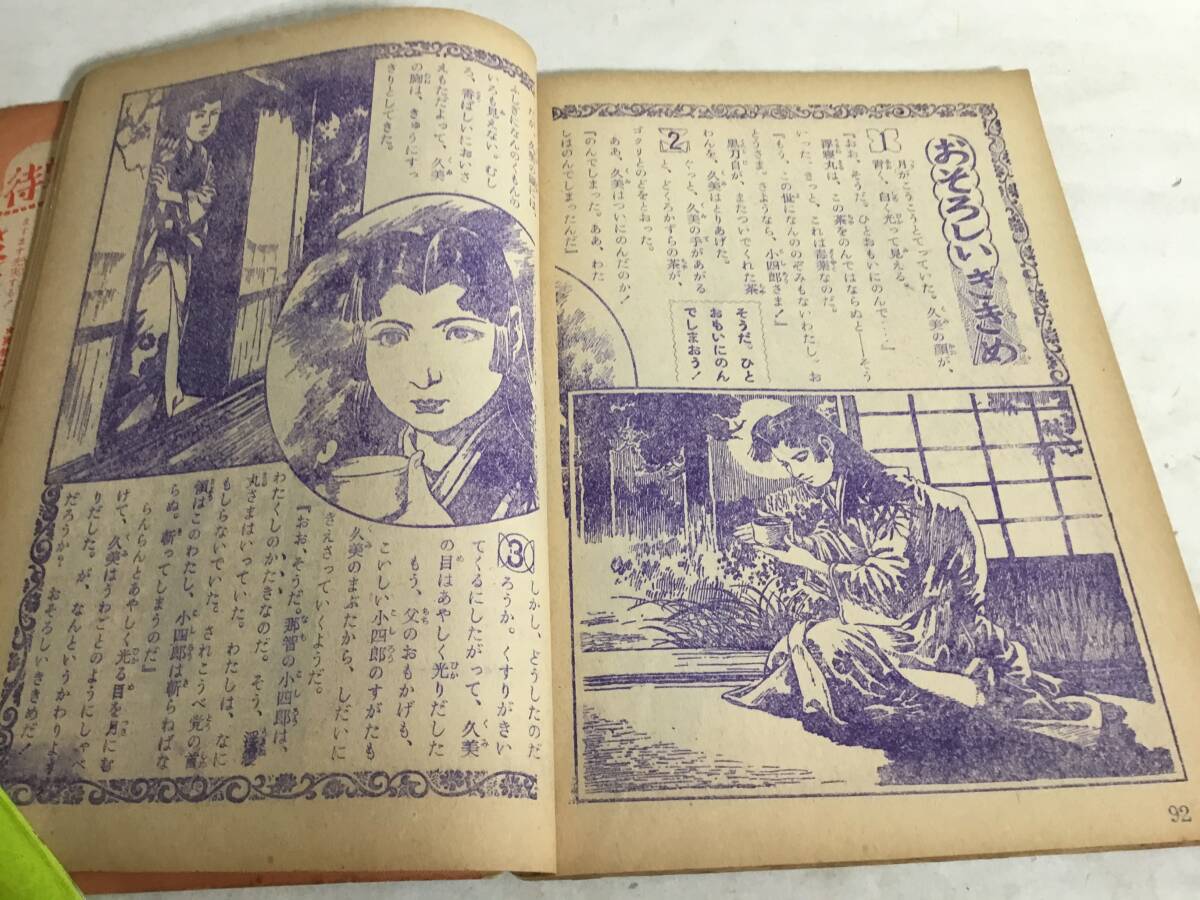 おそろしいききめ
1
月がこうこうとてっていた。久美の顔が、
青く、白く光って見える。
『おお、そうだ。ひとおもいにのんで……』
浮寝丸は、この茶をのんではならぬと――そう
いった。きっと、これは毒薬なのだ。
『もう、この世になんののぞみもないわたし。お
とうさま。さようなら、小四郎さま！』
黒刀自が、またついでくれた茶
わんを、久美はとりあげた。
2
ぐーっと、久美の手があがる
と、どくろかずらの茶が、
ゴクリとのどをとおった。
ああ、久美はついにのんだのか！
『のんでしまった。ああ、わた
しはのんでしまったんだ』
そうだ。ひと
おもいにのん
でしまおう！
いろも見えない。むし
ろ、香ばしいにおいさ
えもただよって、久美
の胸は、きゅうにすっ
きりとしてきた。
3
しかし、どうしたのだ
ろうか。くすりがきい
てくるにしたがって、久美
の目はあやしく光りだした
もう、父のおもかげも、
こいしい小四郎のすがたも
久美のまぶたから、しだいに
きえさっていくようだ。
『おお、そうだ。那智の小四郎は、
わたくしのかたきなのだ。そう、浮寝
丸さまはいっていた。わたしは、なに
もしらないでいた。されこうべ党の首
領はこのわたし、小四郎は斬らねばな
らぬ。斬ってしまうのだ』
らんらんとあやしく光る目を月にむ
けて、久美はうわごとのようにしゃべ
りだした。が、なんというかわりよう
だろうか。おそろしいききめだ！
92